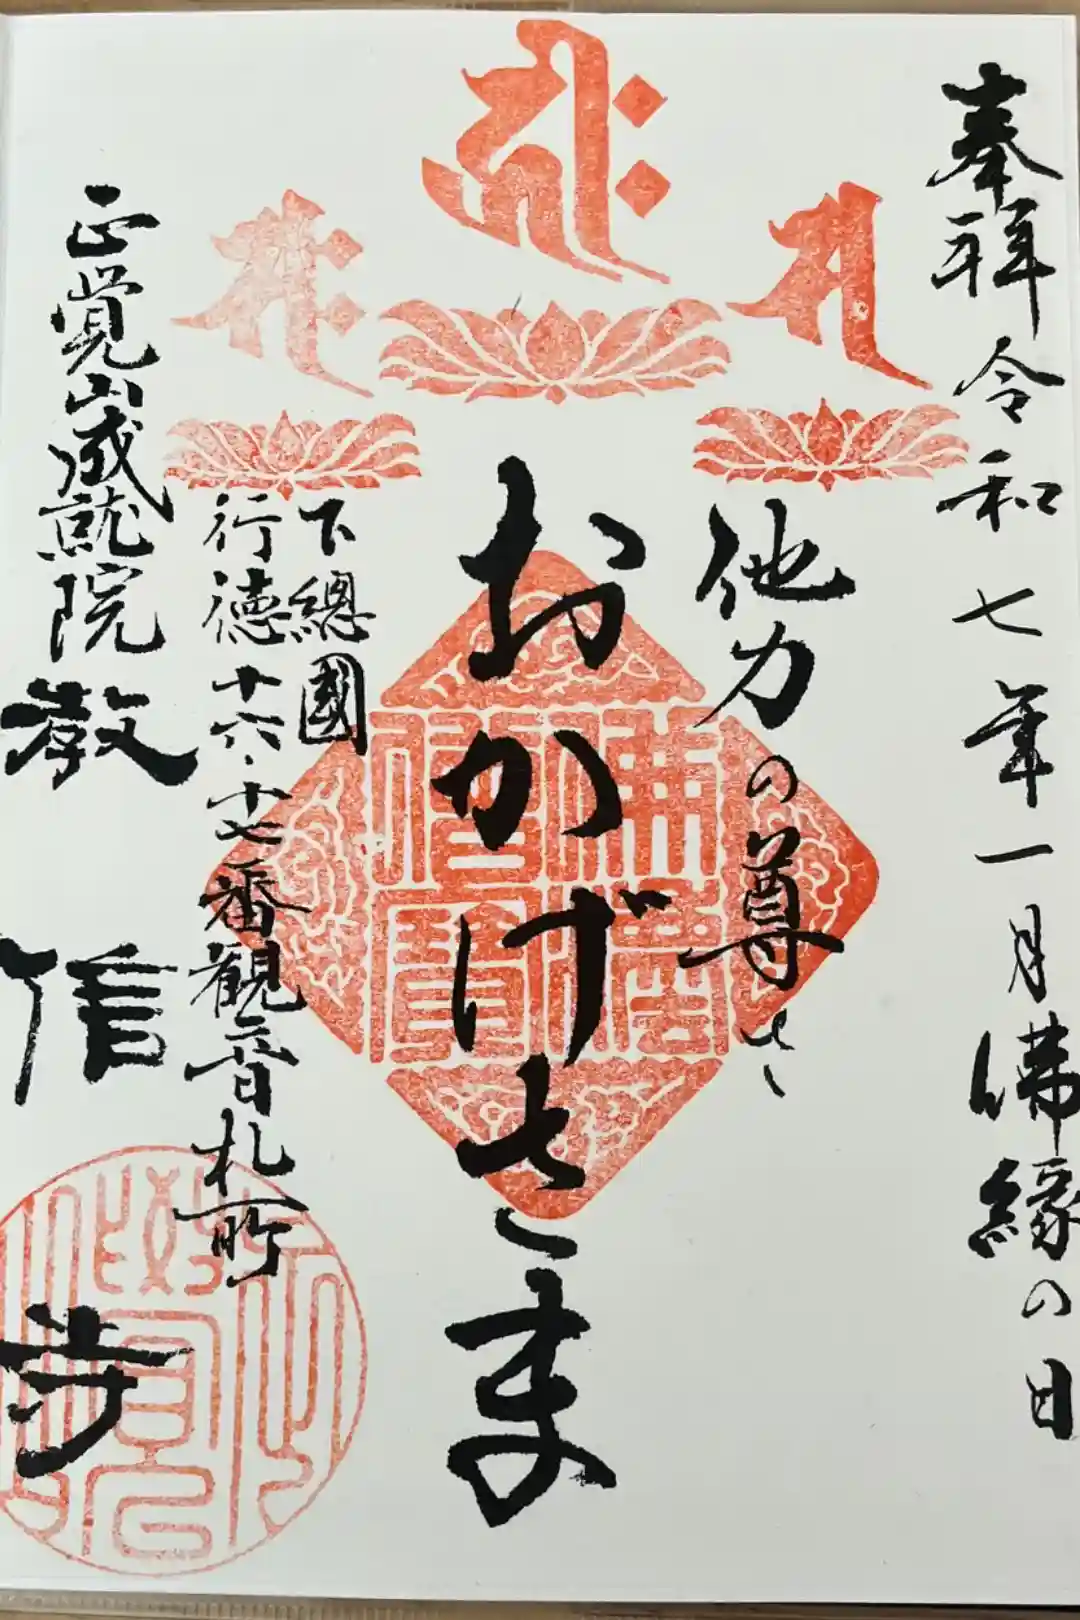 奉拝 令和七年一月佛縁の日
他力の尊さ
おかげさま
下總國
行徳十六・十七番観音札所
正覚山成就院教信寺
佛法僧寳